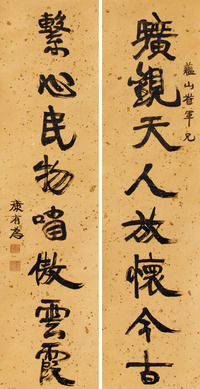 蘊山省軍兄
曠觀天人放懷今古
繫心民物嘯傲雲霞
康有為